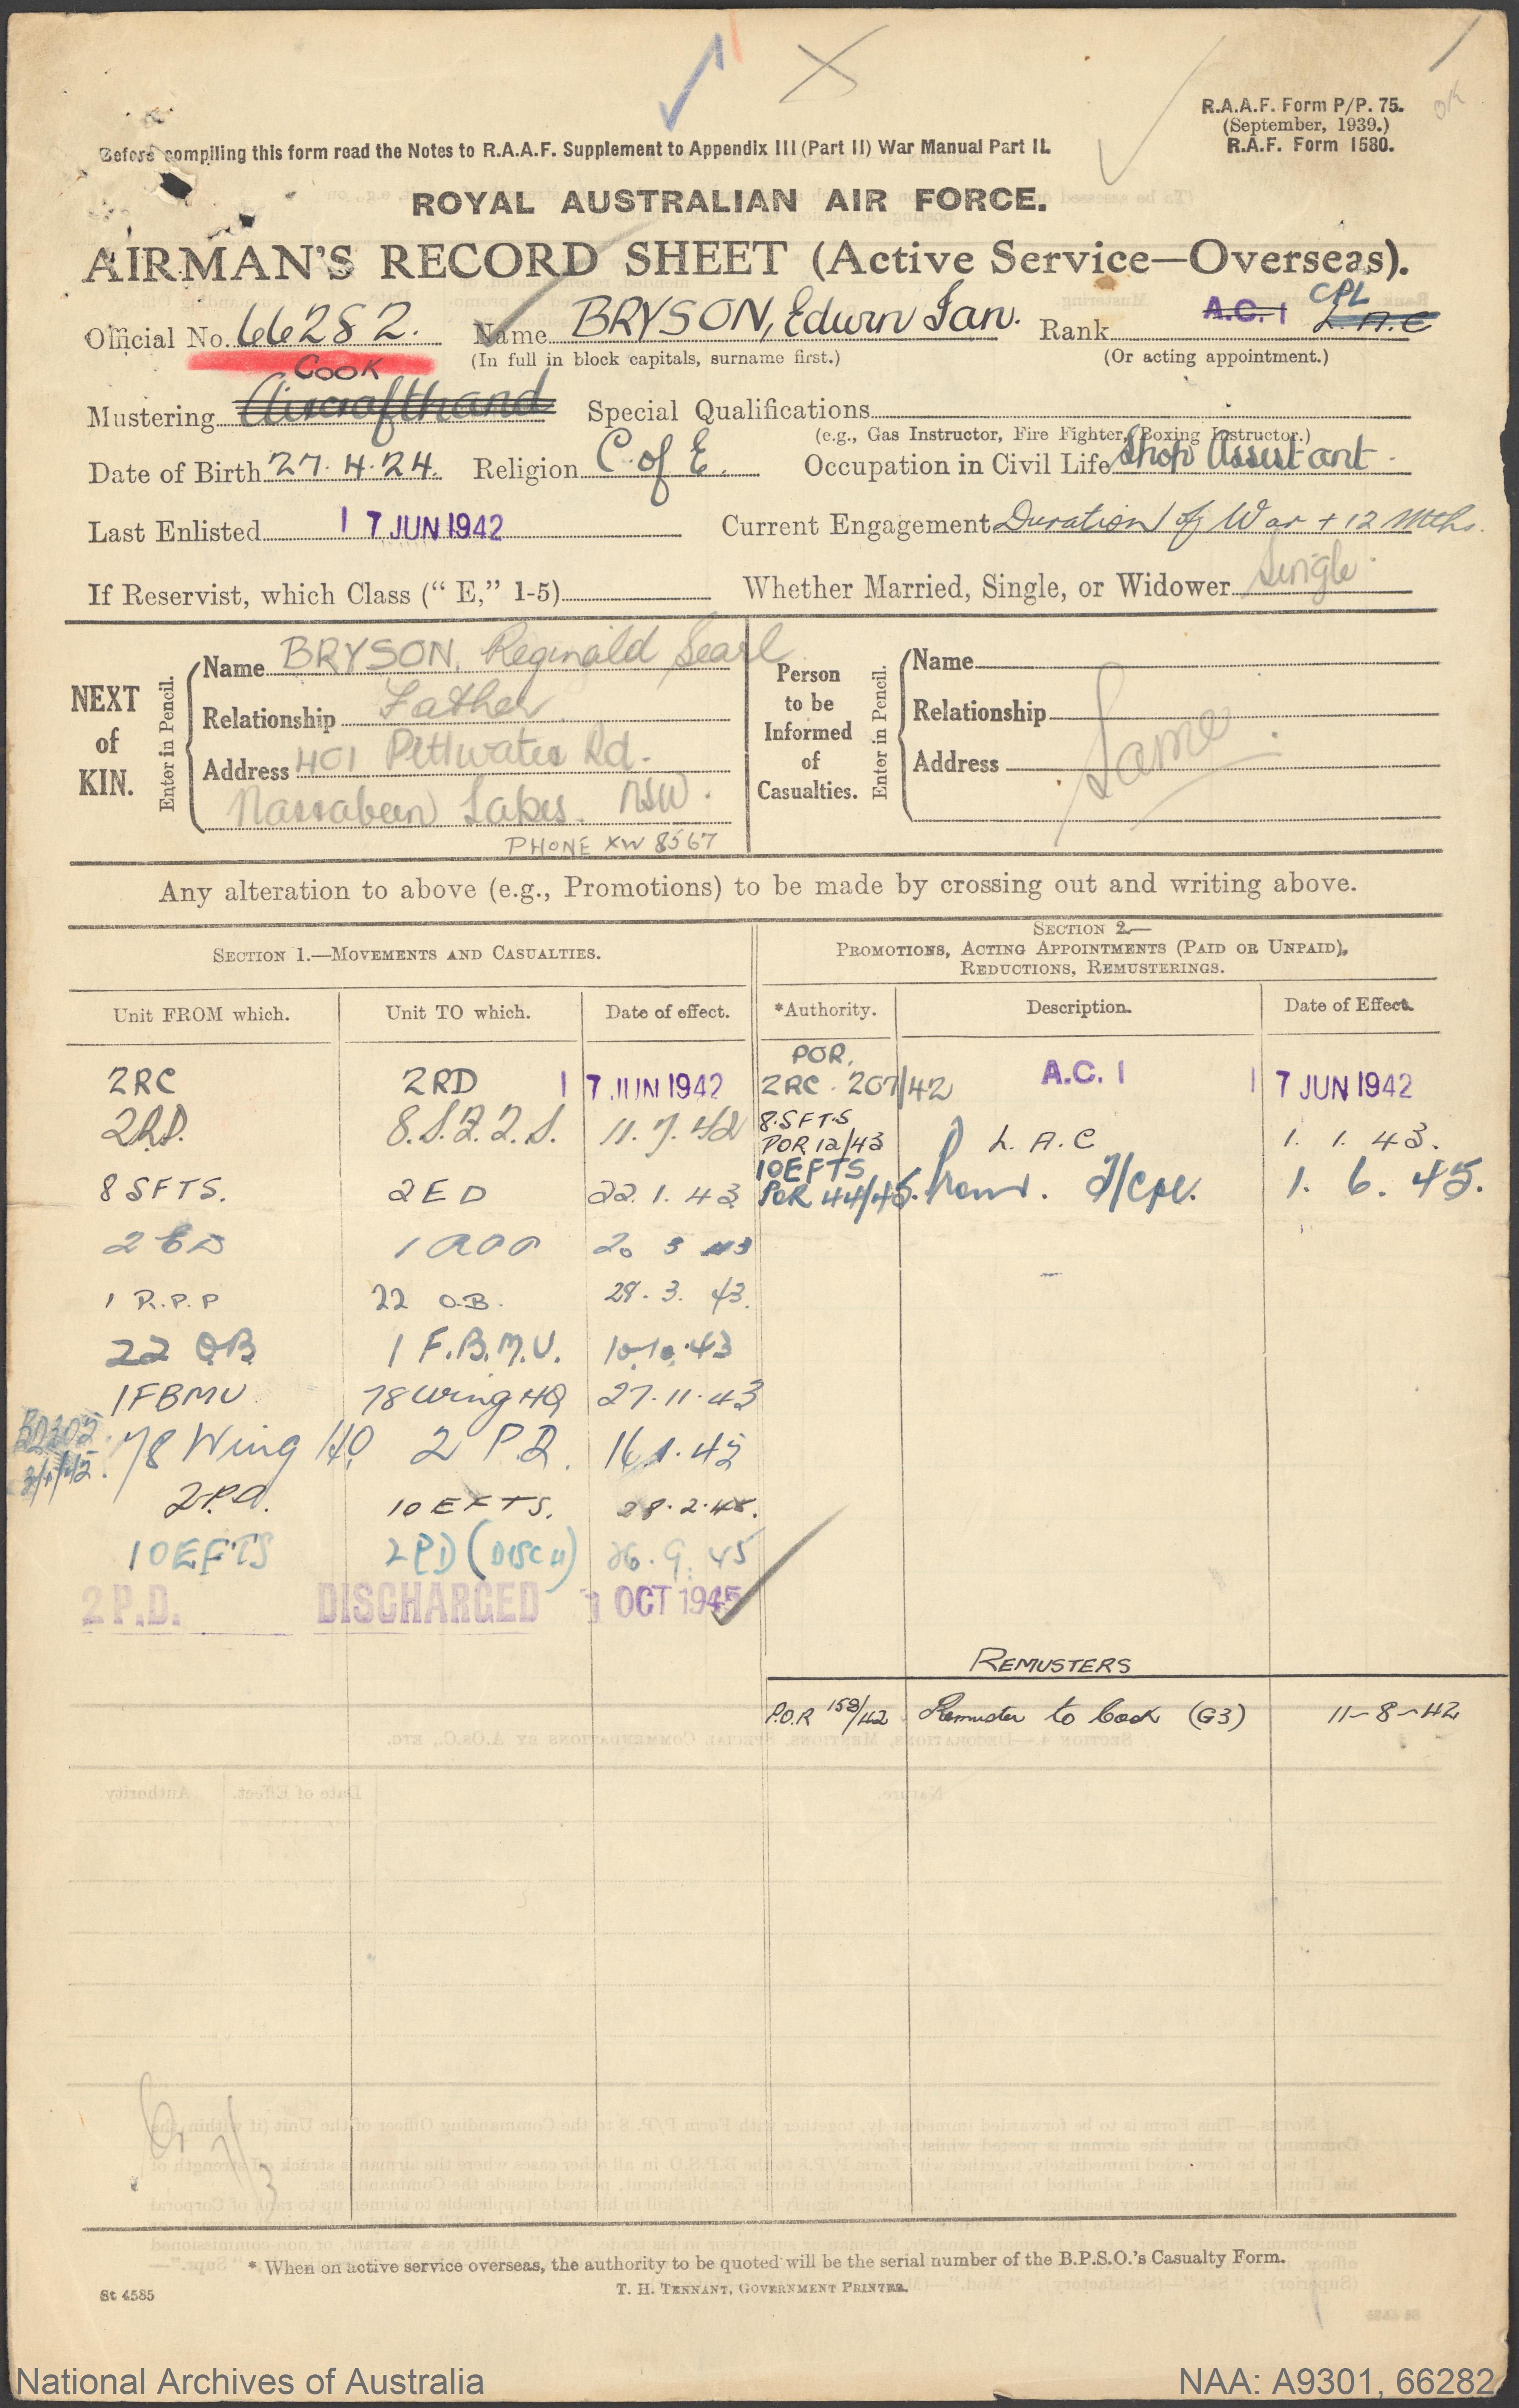 R.A.A.F. Form P/P. 75.
(September, 1939.)
R.A.F. Form 1580.
OK
Before compiling this form read the Notes to R.A.A.F. Supplement to Appendix III (Part II) War Manual Part II.
ROYAL AUSTRALIAN AIR FORCE.
AIRMAN'S RECORD SHEET (Active Service—Overseas).
CPL
Official No. 66282. Name BRYSON, Edwin Ian. Rank A.C.1 L.A.C
(In full in block capitals, surname first.) (Or acting appointment.)
COOK
Mustering Aircrafthand Special Qualifications
(e.g., Gas Instructor, Fire Fighter, Boxing Instructor.)
Date of Birth 27.4.24. Religion C of E. Occupation in Civil Life Shop Assistant.
Last Enlisted 17 JUN 1942 Current Engagement Duration of War + 12 Mths.
If Reservist, which Class (“ E,” 1-5) Whether Married, Single, or Widower Single.
NEXT of KIN. Enter in Pencil.
Name BRYSON, Reginald Searl
Relationship Father
Address 401 Pittwater Rd.
Narrabeen Lakes. NSW.
PHONE XW 8567
Person to be Informed of Casualties. Enter in Pencil.
Name
Relationship Same.
Address
Any alteration to above (e.g., Promotions) to be made by crossing out and writing above.
SECTION 1.—MOVEMENTS AND CASUALTIES.
SECTION 2.—
PROMOTIONS, ACTING APPOINTMENTS (PAID OR UNPAID),
REDUCTIONS, REMUSTERINGS.
Unit FROM which. Unit TO which. Date of effect. *Authority. Description. Date of Effect.
2RC 2RD 17 JUN 1942 POR. 2RC. 207/42 A.C. 1 17 JUN 1942
2RD. 8.S.F.T.S. 11.7.42 8.SFTS POR 12/43 L.A.C 1. 1. 43.
8 SFTS. 2ED 22.1.43 10EFTS POR 44/45. Prom. T/Cpl. 1. 6. 45.
2 ED 20 3 43
1 R.P.P 22 O.B. 28. 3. 43.
22 OB 1 F.B.M.U. 10.10.43
1FBMU 78 Wing HQ 27.11.43
78 Wing HQ 2 P.D. 16.1.45
2.P.D. 10 EFTS. 28.2.45.
10EFTS 2PD (DISCH) 26.9.45
2 P.D. DISCHARGED OCT 1945
REMUSTERS
P.O.R 158/42 Remuster to Cook (G3) 11-8-42
* When on active service overseas, the authority to be quoted will be the serial number of the B.P.S.O.'s Casualty Form.
St 4585
T. H. TENNANT, GOVERNMENT PRINTER.
National Archives of Australia
NAA: A9301, 66282